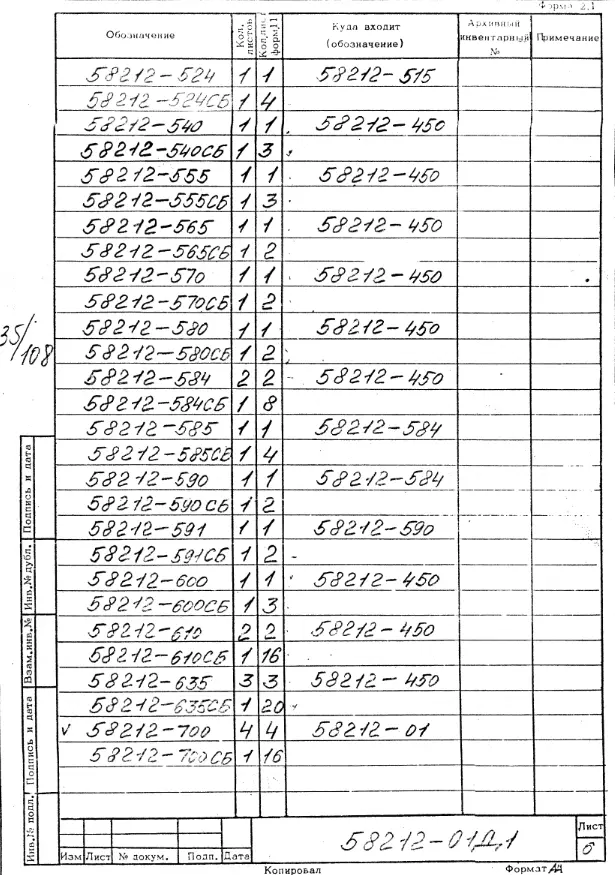 Форма 2.1
Обозначение | Кол. листов | Кол. лист. форм. 11 | Куда входит (обозначение) | Архивный инвентарный № | Примечание
58212-524 1 1 58212-515
58212-524СБ 1 4
58212-540 1 1 58212-450
58212-540СБ 1 3
58212-555 1 1 58212-450
58212-555СБ 1 3
58212-565 1 1 58212-450
58212-565СБ 1 2
58212-570 1 1 58212-450
58212-570СБ 1 2
58212-580 1 1 58212-450
58212-580СБ 1 2
58212-584 2 2 58212-450
58212-584СБ 1 8
58212-585 1 1 58212-584
58212-585СБ 1 4
58212-590 1 1 58212-584
58212-590СБ 1 2
58212-591 1 1 58212-590
58212-591СБ 1 2
58212-600 1 1 58212-450
58212-600СБ 1 3
58212-610 2 2 58212-450
58212-610СБ 1 16
58212-635 3 3 58212-450
58212-635СБ 1 20
V 58212-700 4 4 58212-01
58212-700СБ 1 16
35/108
Подпись и дата
Инв.№ дубл.
Взам.инв.№
Подпись и дата
Инв.№ подл.
58212-01Д,1
Лист
6
Изм Лист № докум. Подп. Дата
Копировал Формат А4